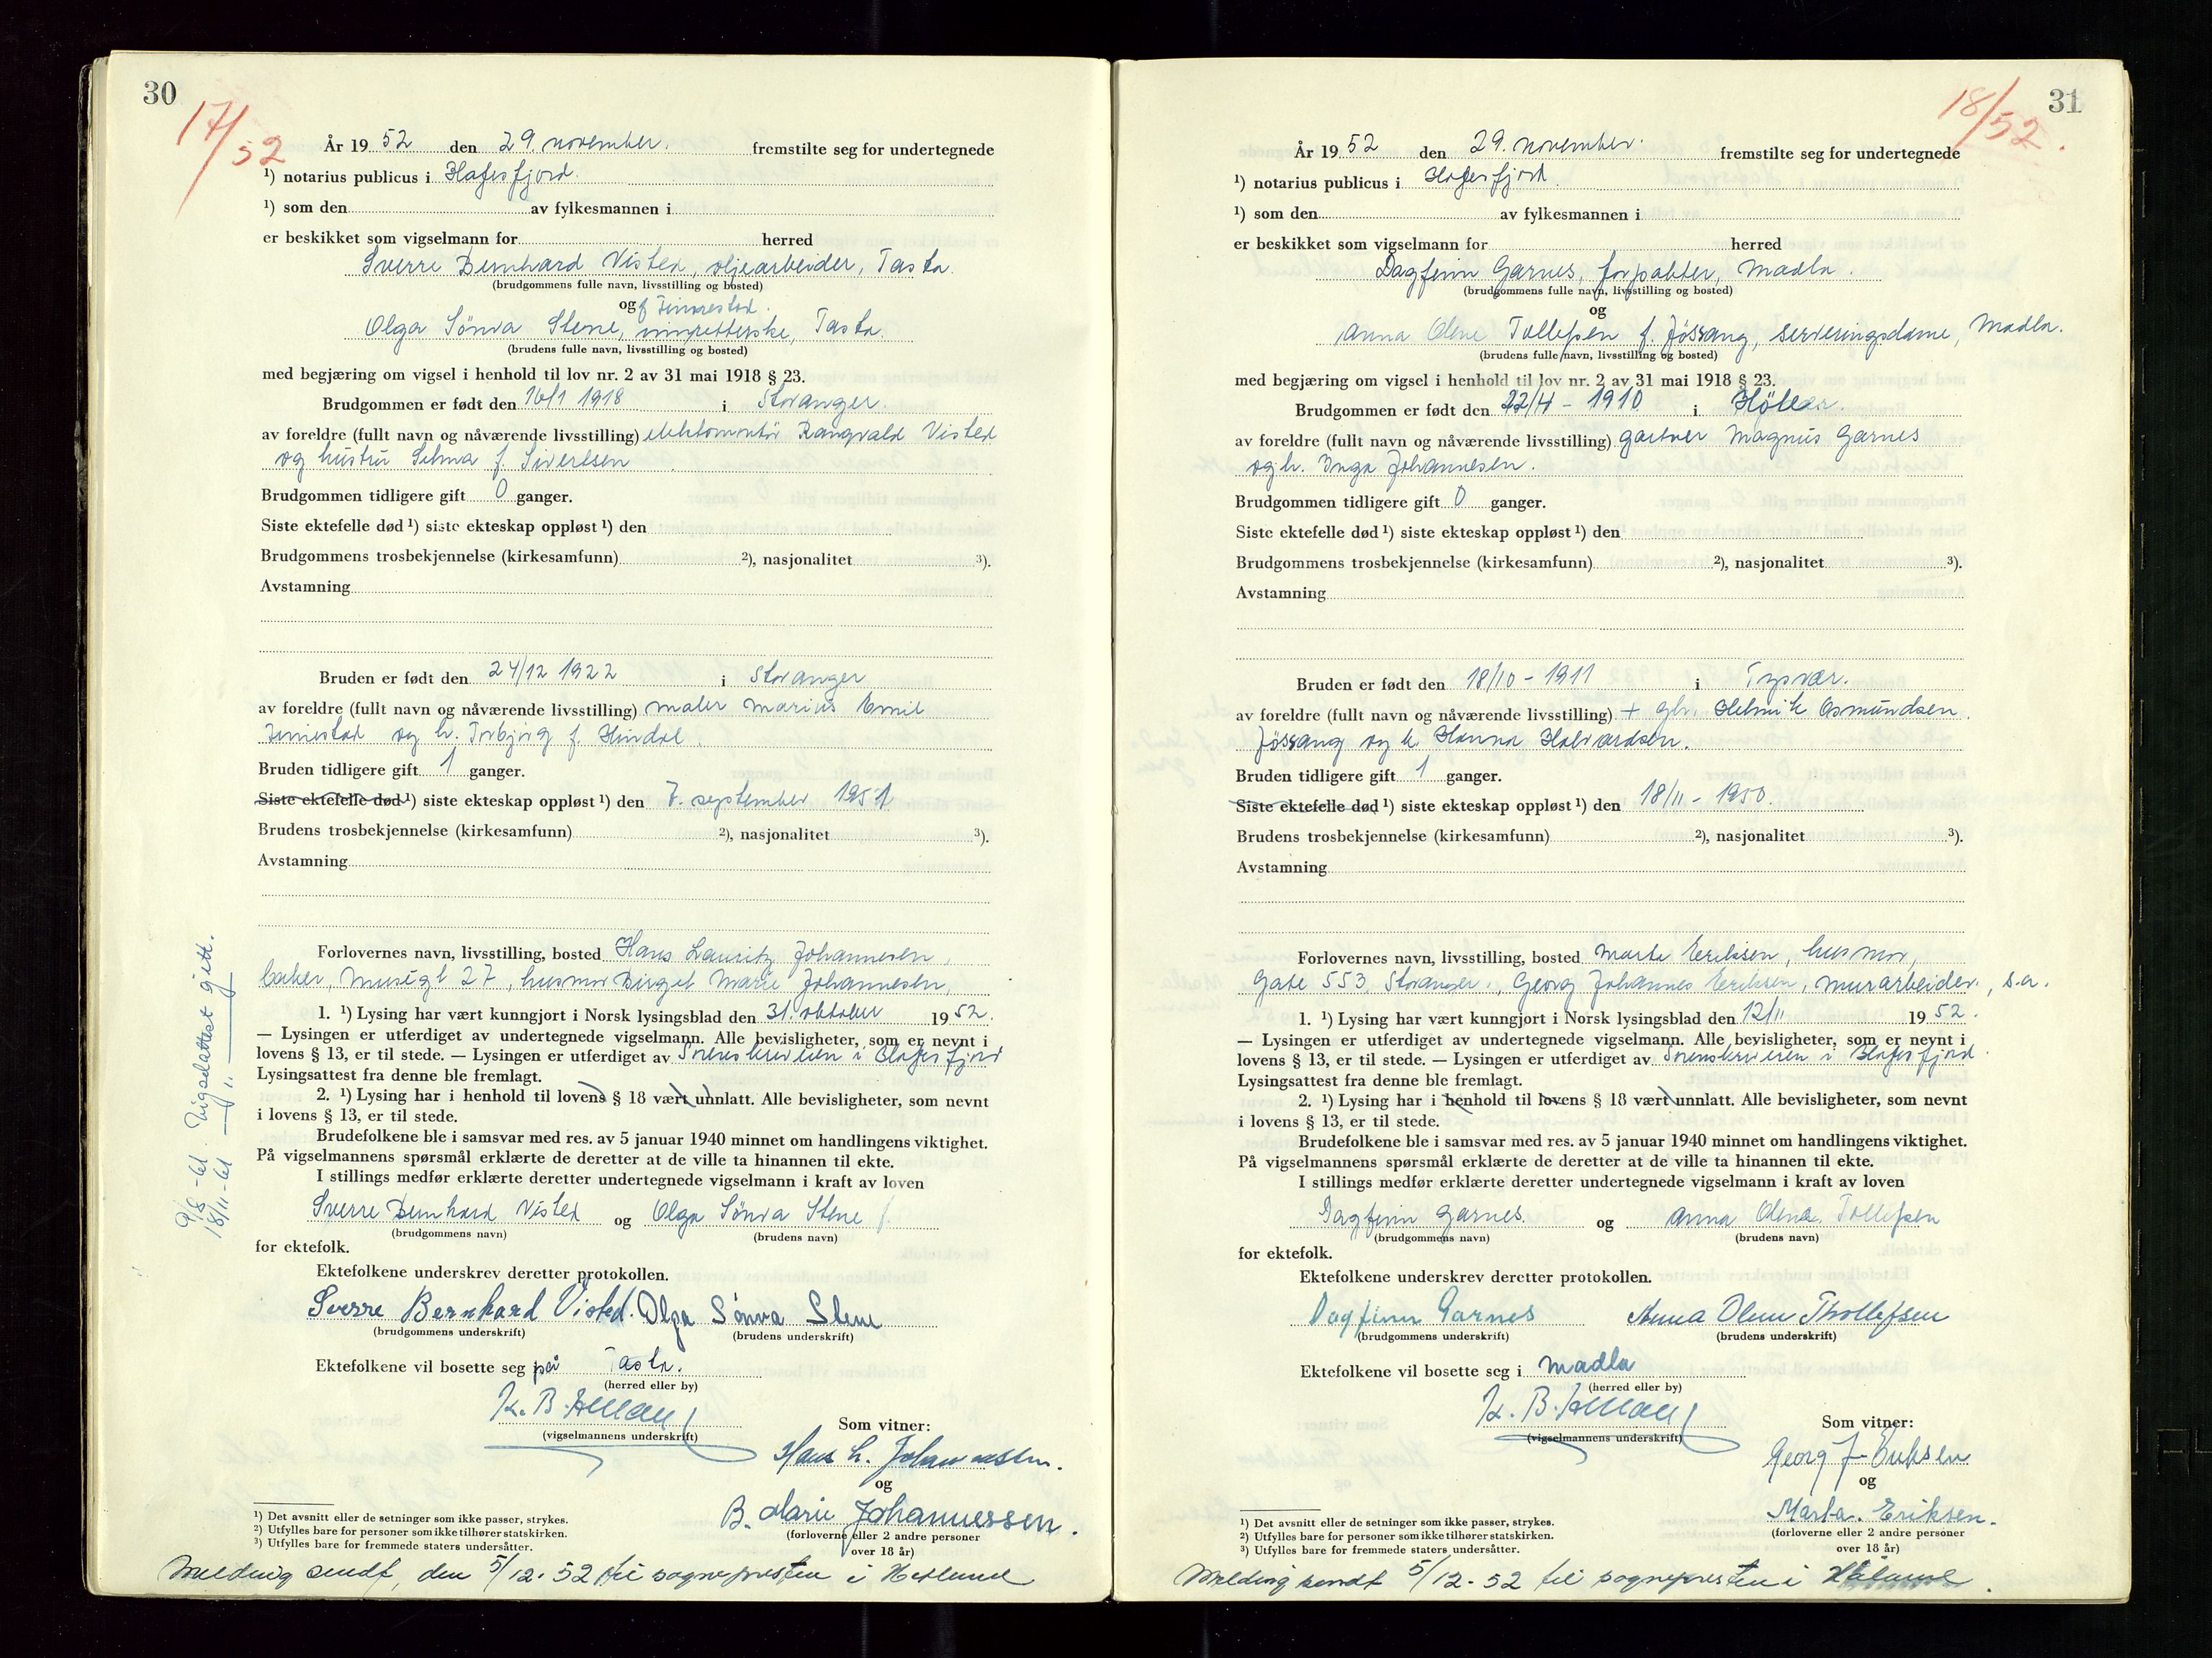 30
17/52
År 1952 den 29. november. fremstilte seg for undertegnede
¹) notarius publicus i Hafrsfjord.
¹) som den av fylkesmannen i
er beskikket som vigselmann for herred
Sverre Bernhard Visted, oljearbeider, Tasta.
(brudgommens fulle navn, livsstilling og bosted)
og f. Finnestad.
Olga Sønva Stene, Tasta.
(brudens fulle navn, livsstilling og bosted)
med begjæring om vigsel i henhold til lov nr. 2 av 31 mai 1918 § 23.
Brudgommen er født den 16/1 1918 i Stavanger.
av foreldre (fullt navn og nåværende livsstilling) elektromontør Rangvald Visted
og hustru Selma f. Sivertsen
Brudgommen tidligere gift 0 ganger.
Siste ektefelle død ¹) siste ekteskap oppløst ¹) den
Brudgommens trosbekjennelse (kirkesamfunn) ²), nasjonalitet ³).
Avstamning
Bruden er født den 24/12 1922 i Stavanger
av foreldre (fullt navn og nåværende livsstilling) maler Marius Emil
Finnestad og h. Torbjørg f. Hindal.
Bruden tidligere gift 1 ganger.
Siste ektefelle død ¹) siste ekteskap oppløst ¹) den 7. september 1951
Brudens trosbekjennelse (kirkesamfunn) ²), nasjonalitet ³).
Avstamning
Forlovernes navn, livsstilling, bosted Hans Lauritz Johannesen,
baker, Muségt 27, husmor Birgit Marie Johannesen,
1. ¹) Lysing har vært kunngjort i Norsk lysingsblad den 31. oktober 1952.
— Lysingen er utferdiget av undertegnede vigselmann. Alle bevisligheter, som er nevnt i
lovens § 13, er til stede. — Lysingen er utferdiget av Sorenskriveren i Hafrsfjord
Lysingsattest fra denne ble fremlagt.
2. ¹) Lysing har i henhold til lovens § 18 vært unnlatt. Alle bevisligheter, som nevnt
i lovens § 13, er til stede.
Brudefolkene ble i samsvar med res. av 5 januar 1940 minnet om handlingens viktighet.
På vigselmannens spørsmål erklærte de deretter at de ville ta hinannen til ekte.
I stillings medfør erklærte deretter undertegnede vigselmann i kraft av loven
Sverre Bernhard Visted og Olga Sønva Stene
(brudgommens navn) (brudens navn)
for ektefolk.
Ektefolkene underskrev deretter protokollen.
Sverre Bernhard Visted. Olga Sønva Stene
(brudgommens underskrift) (brudens underskrift)
Ektefolkene vil bosette seg på Tasta.
(herred eller by)
(vigselmannens underskrift)
Som vitner:
Hans L. Johannessen.
og
B. Marie Johannessen.
(forloverne eller 2 andre personer
over 18 år)
¹) Det avsnitt eller de setninger som ikke passer, strykes.
²) Utfylles bare for personer som ikke tilhører statskirken.
³) Utfylles bare for fremmede staters undersåtter.
Melding sendt, den 5/12-52 til sognepresten i Hetland
9/8-61. Vigselattest gitt.
18/11-61 — " —
31
18/52.
År 1952 den 29. november. fremstilte seg for undertegnede
¹) notarius publicus i Hafrsfjord.
¹) som den av fylkesmannen i
er beskikket som vigselmann for herred
Dagfinn Garnes, forpakter, Madla.
(brudgommens fulle navn, livsstilling og bosted)
og
Anna Olene Tollefsen f. Jössang, serveringsdame, Madla.
(brudens fulle navn, livsstilling og bosted)
med begjæring om vigsel i henhold til lov nr. 2 av 31 mai 1918 § 23.
Brudgommen er født den 22/4 - 1910 i
av foreldre (fullt navn og nåværende livsstilling) gartner Magnus Garnes
og h. Inga Johannesen.
Brudgommen tidligere gift 0 ganger.
Siste ektefelle død ¹) siste ekteskap oppløst ¹) den
Brudgommens trosbekjennelse (kirkesamfunn) ²), nasjonalitet ³).
Avstamning
Bruden er født den 18/10 - 1911 i Tysvær.
av foreldre (fullt navn og nåværende livsstilling) + gbr. Helmik Osmundsen
Jössang og h. Hanna Halvardsen.
Bruden tidligere gift 1 ganger.
Siste ektefelle død ¹) siste ekteskap oppløst ¹) den 18/11 - 1950.
Brudens trosbekjennelse (kirkesamfunn) ²), nasjonalitet ³).
Avstamning
Forlovernes navn, livsstilling, bosted Marta Eriksen, husmor,
Gate 553 Stavanger, Georg Johannes Eriksen, murarbeider, s.a.
1. ¹) Lysing har vært kunngjort i Norsk lysingsblad den 12/11 1952.
— Lysingen er utferdiget av undertegnede vigselmann. Alle bevisligheter, som er nevnt i
lovens § 13, er til stede. — Lysingen er utferdiget av Sorenskriveren i Hafrsfjord.
Lysingsattest fra denne ble fremlagt.
2. ¹) Lysing har i henhold til lovens § 18 vært unnlatt. Alle bevisligheter, som nevnt
i lovens § 13, er til stede.
Brudefolkene ble i samsvar med res. av 5 januar 1940 minnet om handlingens viktighet.
På vigselmannens spørsmål erklærte de deretter at de ville ta hinannen til ekte.
I stillings medfør erklærte deretter undertegnede vigselmann i kraft av loven
Dagfinn Garnes og Anna Olena Tollefsen
(brudgommens navn) (brudens navn)
for ektefolk.
Ektefolkene underskrev deretter protokollen.
Dagfinn Garnes Anna Olene Thollefsen
(brudgommens underskrift) (brudens underskrift)
Ektefolkene vil bosette seg i Madla
(herred eller by)
(vigselmannens underskrift)
Som vitner:
Georg J. Eriksen
og
Marta. Eriksen.
(forloverne eller 2 andre personer
over 18 år)
¹) Det avsnitt eller de setninger som ikke passer, strykes.
²) Utfylles bare for personer som ikke tilhører statskirken.
³) Utfylles bare for fremmede staters undersåtter.
Melding sendt 5/12-52 til sognepresten i Håland.